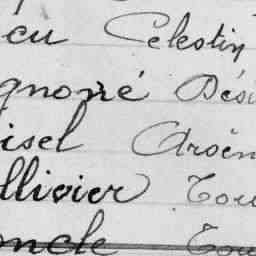 eu Celestin
gnoné Dési
isel Arsèn
llivier Tou
oncle Tou